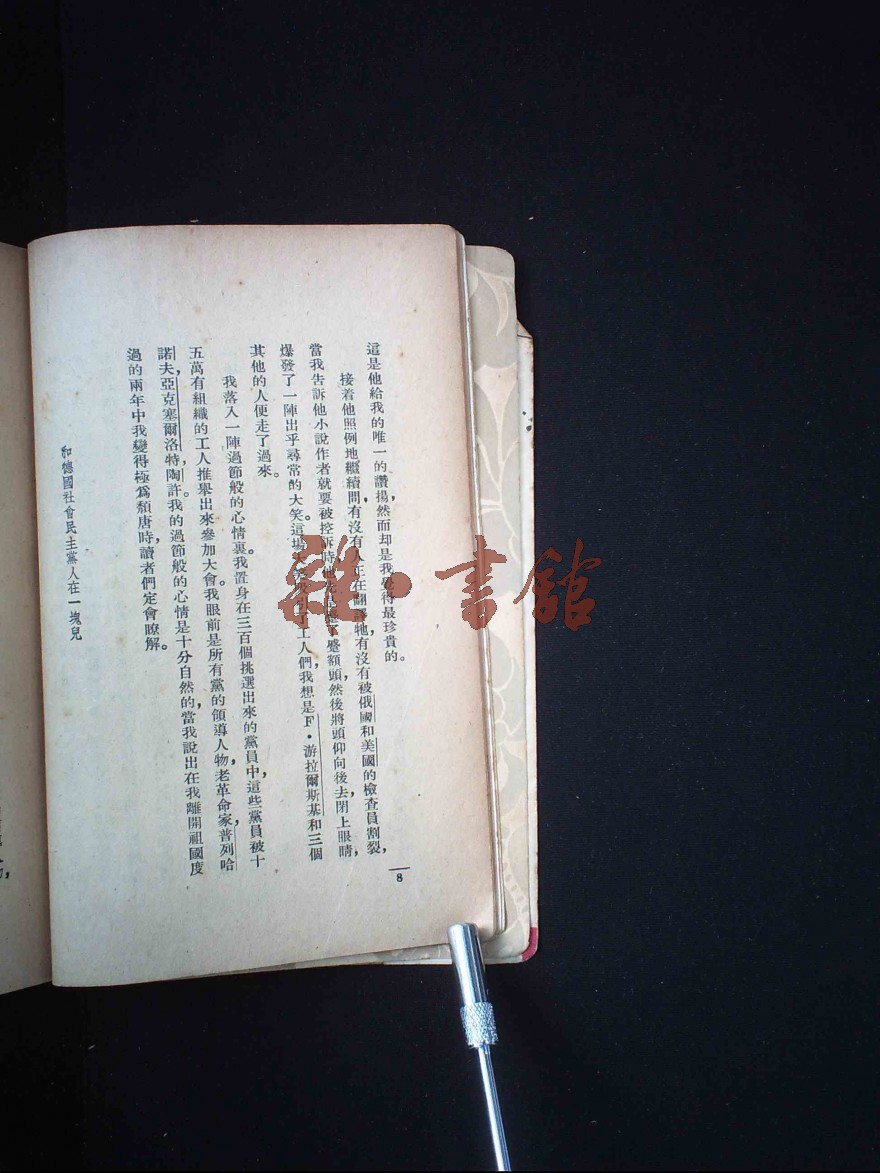 這是他給我的唯一的讚揚，然而却是我覺得最珍貴的。
接着他照例地繼續問有沒有人正在翻譯牠，有沒有被俄國和美國的檢查員割裂，
當我告訴他小說作者就要被控訴時，他先了蹙額頭，然後將頭仰向後去，閉上眼睛，
爆發了一陣出乎尋常的大笑。這場大笑吸引了工人們，我想是F·游拉爾斯基和三個
其他的人便走了過來。
我落入一陣過節般的心情裏。我置身在三百個挑選出來的黨員中，這些黨員被十
五萬有組織的工人推舉出來參加大會。我眼前是所有黨的領導人物，老革命家，普列哈
諾夫，亞克塞爾洛特，陶許。我的過節般的心情是十分自然的，當我說出在我離開祖國度
過的兩年中我變得極爲頹唐時，讀者們定會瞭解。
和德國社會民主黨人在一塊兒
8
雜·書館